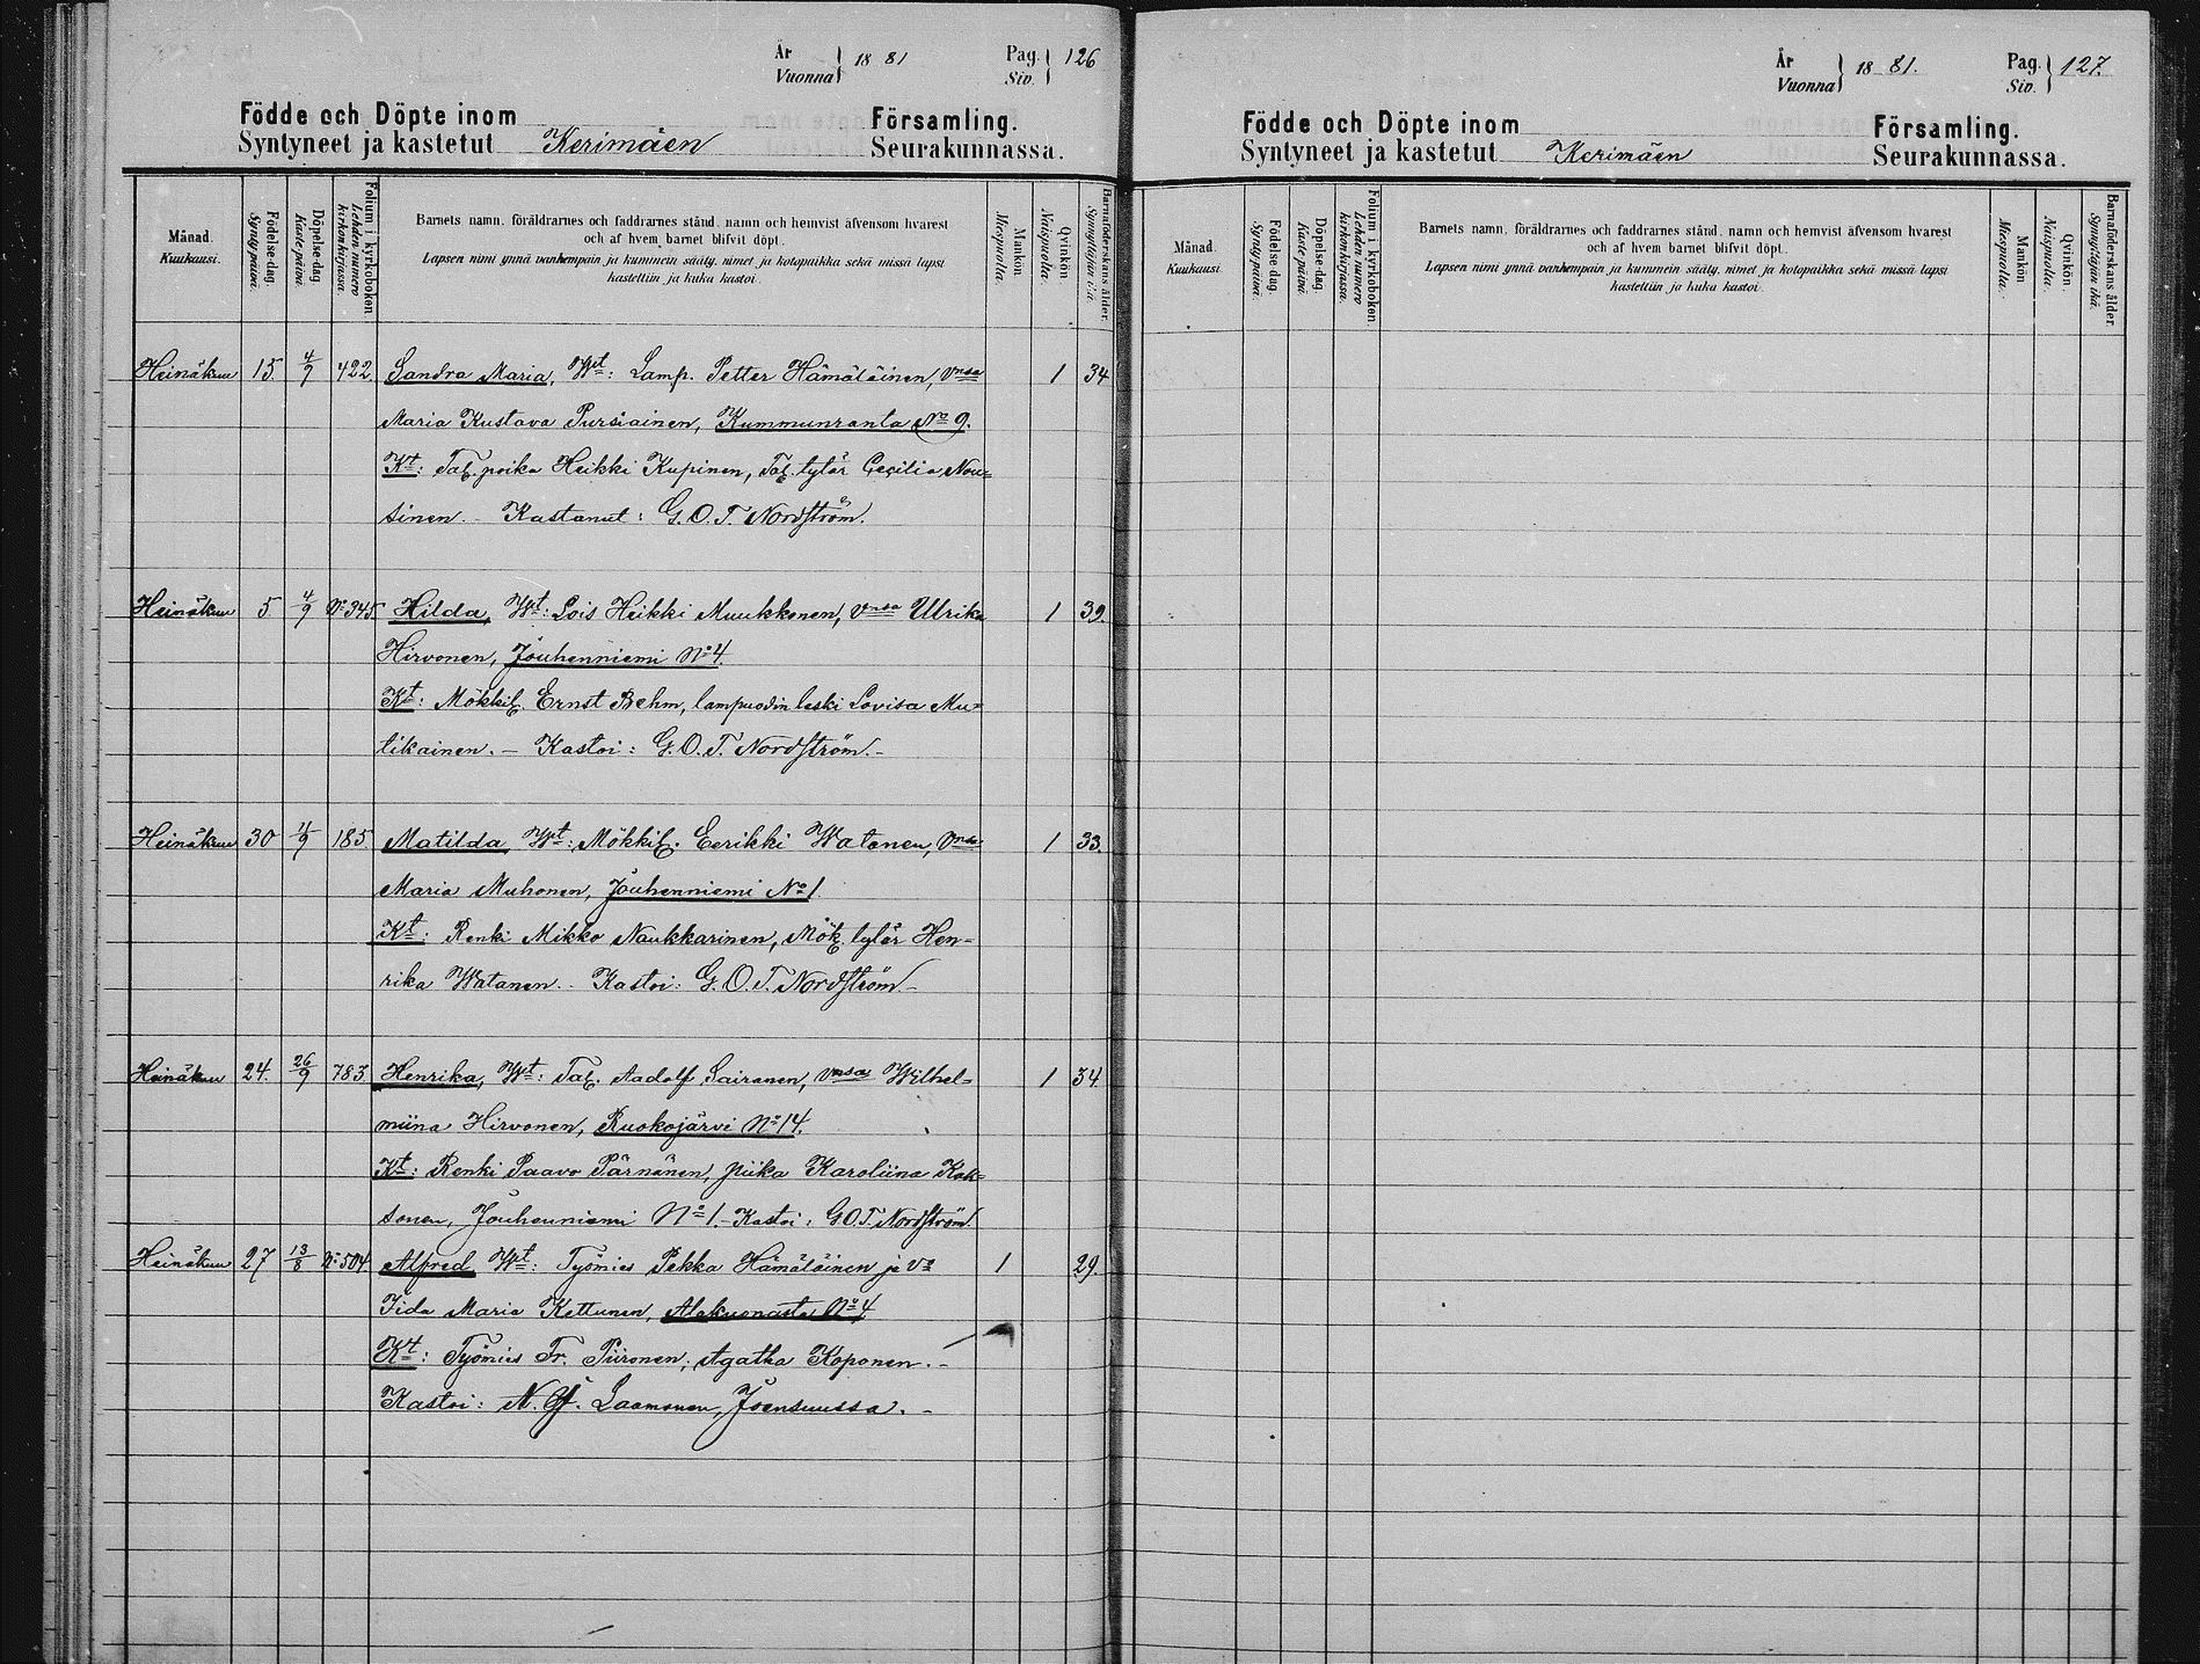 År
Vuonna
18 81
Pag.
Siv.
126
Födde och Döpte inom
Församling.
Syntyneet ja kastetut Kerimäen Seurakunnassa.
Månad.
Kuukausi.
Födelse-dag.
Syntypäivä.
Döpelse-dag.
Kastepäivä.
Folium i kyrkoboken.
Lehden numero
kirkonkirjassa.
Barnets namn, föräldrarnes och faddrarnes stånd, namn och hemvist äfvensom hvarest
och af hvem barnet blifvit döpt.
Lapsen nimi ynnä vanhempain ja kummein sääty, nimet ja kotopaikka sekä missä lapsi
kastettiin ja kuka kastoi.
Mankön
Miespuolta.
Qvinkön.
Naispuolta.
Barnaföderskans ålder.
Synnyttäjän ikä.
Heinäkuu 15. 4/9 422. Sandra Maria, Wt: Lamp. Petter Hämäläinen, Vnsa 1 34
Maria Kustava Pursiainen, Kummunranta No 9.
Kt: Tal. poika Heikki Kupinen, Tal. tytär Cecilia Nou=
sinen. - Kastanut: G. O. T. Nordström.
Heinäkuu 5. 4/9 No 345. Hilda, Wt: Lois Heikki Muukkonen, Vnsa Ulrika 1 39.
Hirvonen, Jouhenniemi No 4.
Kt: Mökkil. Ernst Behm, lampuodin leski Lovisa Mu=
tikainen. - Kastoi: G. O. T. Nordström. -
Heinäkuu 30 4/9 185. Matilda, Wt: Mökkil. Eerikki Watanen, Vnsa 1 33.
Maria Muhonen, Jouhenniemi No 1.
Kt: Renki Mikko Naukkarinen, Mök. tytär Hen=
rika Watanen. - Kastoi: G. O. T. Nordström -
Heinäkuu 24. 26/9 783. Henrika, Wt: Tal. Aadolf Sairanen, Vnsa Wilhel= 1 34.
miina Hirvonen, Ruokojärvi No 14.
Kt: Renki Paavo Pärnänen, piika Karoliina Kok=
sonen, Jouhenniemi No 1. - Kastoi: G. O. T. Nordström.
Heinäkuu 27 13/8 No 504. Alfred Wt: Työmies Pekka Hämäläinen ja Vo 1 29.
Iida Maria Kettunen, Alakuonasta No 4
Kt: Työmies Fr. Piironen, Agatha Koponen. -
Kastoi: N. G. Laamonen, Joensuussa. -
År
Vuonna
18 81.
Pag.
Siv.
127.
Födde och Döpte inom
Församling.
Syntyneet ja kastetut Kerimäen Seurakunnassa.
Månad.
Kuukausi
Födelse-dag.
Syntypäivä.
Döpelse-dag.
Kastepäivä.
Folium i kyrkoboken.
Lehden numero
kirkonkirjassa.
Barnets namn, föräldrarnes och faddrarnes stånd, namn och hemvist äfvensom hvarest
och af hvem barnet blifvit döpt.
Lapsen nimi ynnä vanhempain ja kummein sääty, nimet ja kotopaikka sekä missä lapsi
kastettiin ja kuka kastoi.
Mankön
Miespuolta.
Qvinkön.
Naispuolta.
Barnaföderskans ålder.
Synnyttäjän ikä.